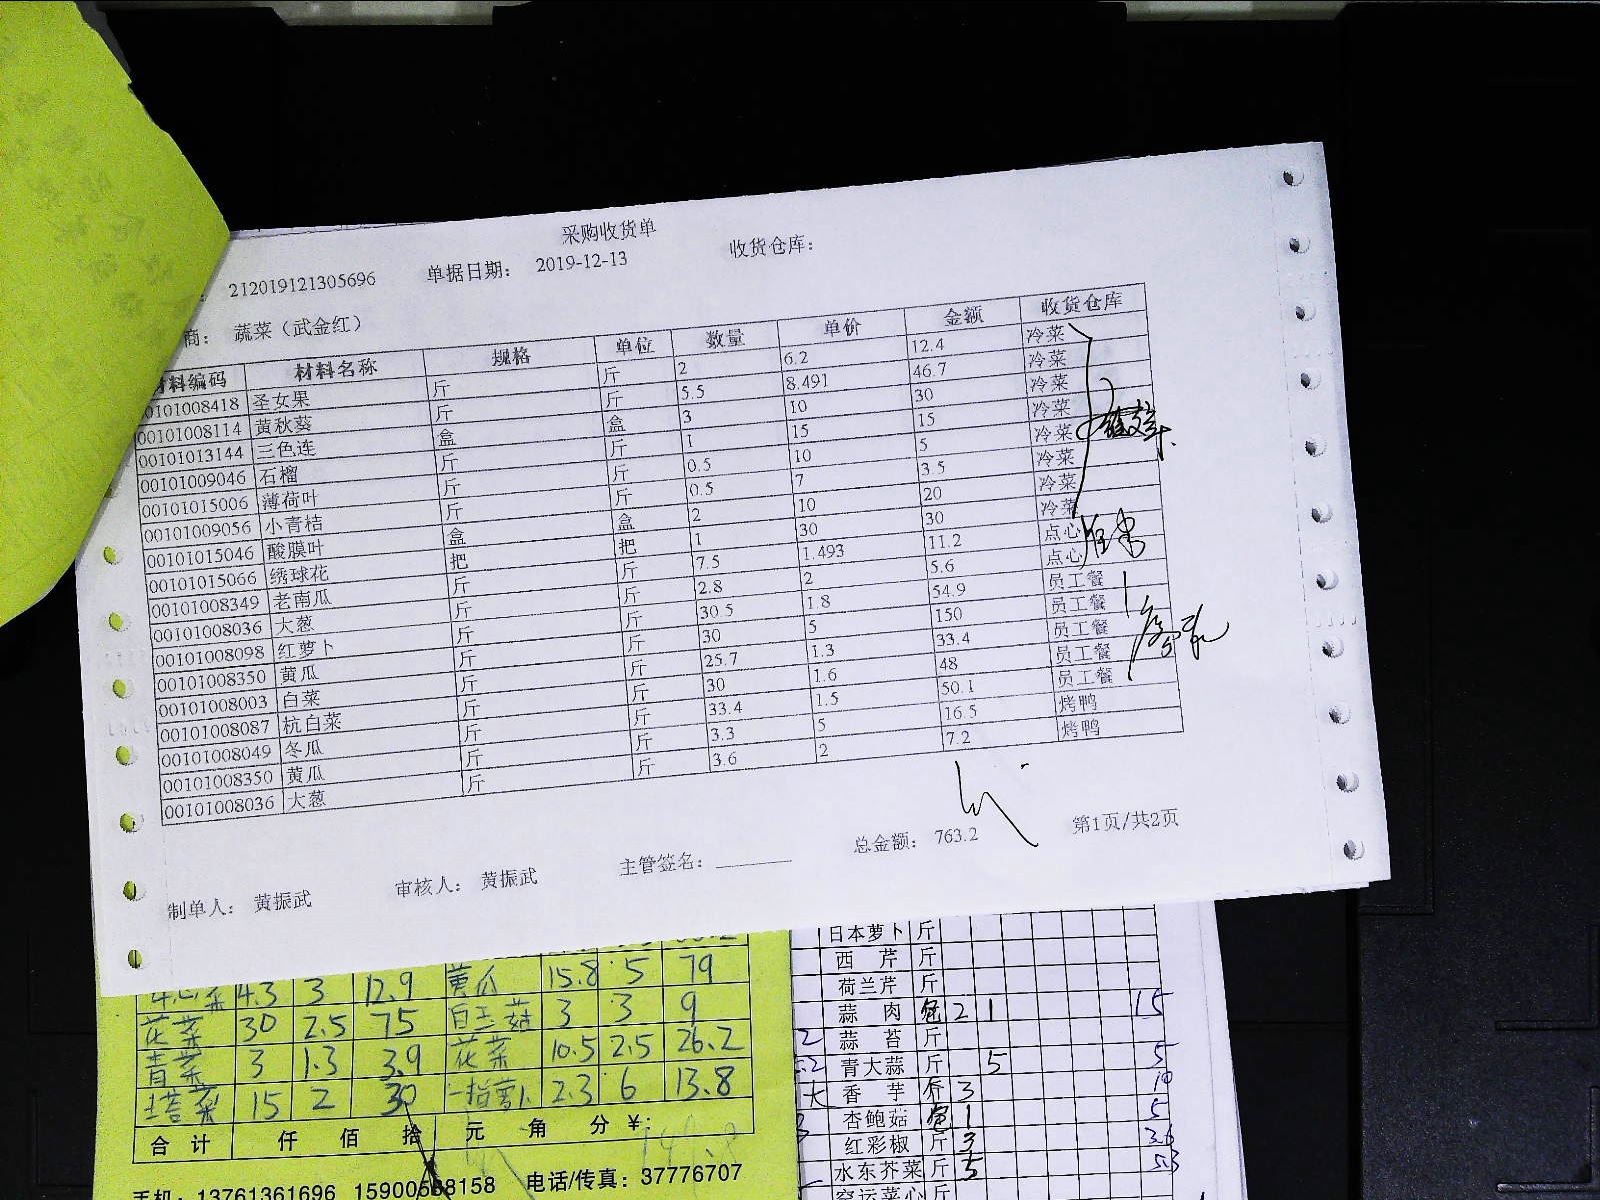 采购收货单
212019121305696 单据日期： 2019-12-13 收货仓库：
商： 蔬菜（武金红）
材料编码 材料名称 规格 单位 数量 单价 金额 收货仓库
00101008418 圣女果 斤 斤 2 6.2 12.4 冷菜
00101008114 黄秋葵 斤 斤 5.5 8.491 46.7 冷菜
00101013144 三色连 盒 盒 3 10 30 冷菜
00101009046 石榴 斤 斤 1 15 15 冷菜
00101015006 薄荷叶 斤 斤 0.5 10 5 冷菜
00101009056 小青桔 斤 斤 0.5 7 3.5 冷菜
00101015046 酸膜叶 盒 盒 2 10 20 冷菜
00101015066 绣球花 把 把 1 30 30 冷菜
00101008349 老南瓜 斤 斤 7.5 1.493 11.2 点心
00101008036 大葱 斤 斤 2.8 2 5.6 点心
00101008098 红萝卜 斤 斤 30.5 1.8 54.9 员工餐
00101008350 黄瓜 斤 斤 30 5 150 员工餐
00101008003 白菜 斤 斤 25.7 1.3 33.4 员工餐
00101008087 杭白菜 斤 斤 30 1.6 48 员工餐
00101008049 冬瓜 斤 斤 33.4 1.5 50.1 员工餐
00101008350 黄瓜 斤 斤 3.3 5 16.5 烤鸭
00101008036 大葱 斤 斤 3.6 2 7.2 烤鸭
总金额： 763.2 第1页/共2页
制单人： 黄振武 审核人： 黄振武 主管签名：
4.3 3 12.9 黄瓜 15.8 5 79
花菜 30 2.5 75 白玉菇 3 3 9
青菜 3 1.3 3.9 花菜 10.5 2.5 26.2
塔菜 15 2 30 一指萝卜 2.3 6 13.8
合计 仟 佰 拾 元 角 分 ￥：
手机：13761361696 15900568158 电话/传真：37776707
日本萝卜 斤
西芹 斤
荷兰芹 斤
蒜肉 包 2 1 15
蒜苔 斤
青大蒜 斤 5 5
香芋 斤 3 10
杏鲍菇 包 1 5
红彩椒 斤 3 3.6
水东芥菜 斤 5 5.3
空运菜心 斤